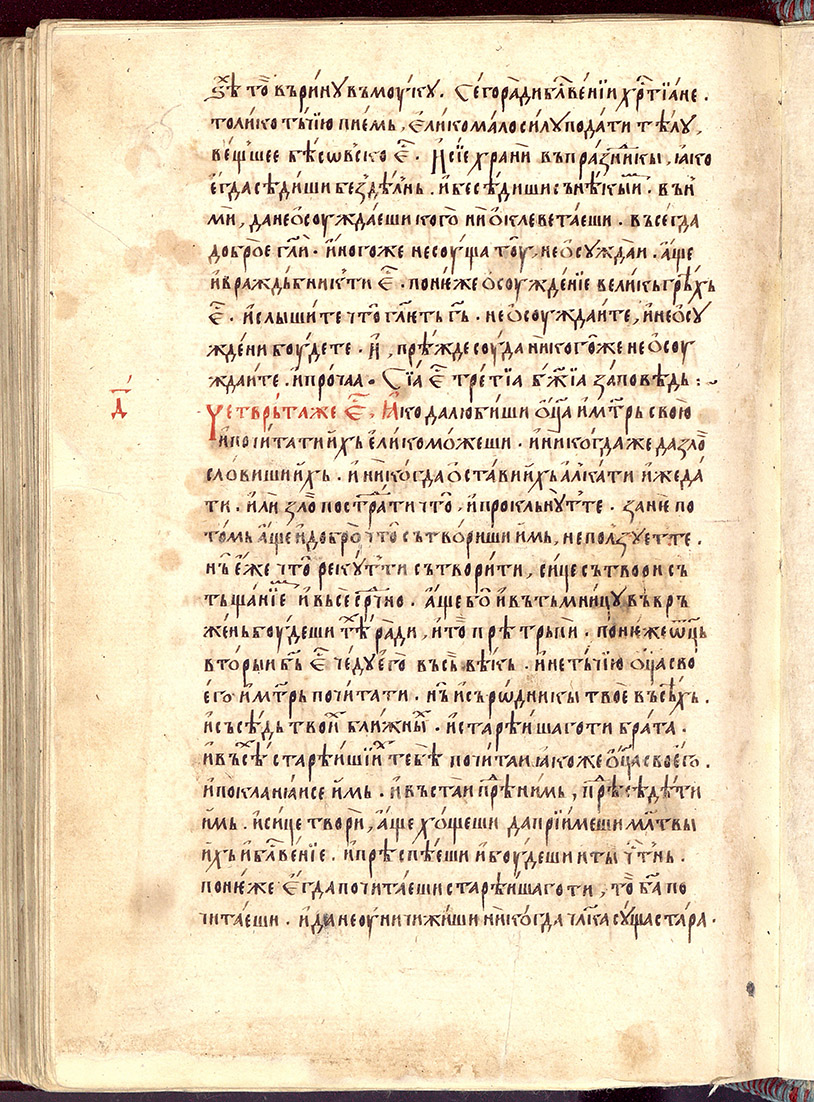 ꙁѣ то̀ въри́ну въмоу́ку. Сего́ра́ди бл҃ве́нїи хр҃тїа́не.
толи́ко ты́чїю пїемь, е҆ли́ко ма́ло си́лу пода́ти тѣ́лу,
ве́щшее бѣсо́вско є҆҃. И҆ сїѐ храни̑ въпра́зники, ꙗко
е҆гда̀ сѣди́ши безъдѣ́лнь. и҆ бесѣ́диши сънѣ́кыи. вън̾
ми, да не ѡ҆соужда́еши кого̀ ни ѡ҆клевета́еши. въсегда
до́брое гл҃и. и҆ного́же несоу́ща тоу, не ѡ҆су́ждаи. а҆ще
и҆ враждь́бник ти є҆҃. поне́же ѡ҆сужде́нїе вели́къ грѣ́хъ
є҆҃. и҆ слы́шите что̀ гл҃еть г҃ь. не ѡ҆соужда́ите, и҆ не ѡ҆су
жде́ни боу́дете. И҆, прѣ́жде соуда̀ никого́же не ѡ҆соу
жда́ите. и҆ про́чаа. Сїа̀ є҆҃ тре́тїа бж҃їа за́повѣдь:~
д҃
Четврь́таа же є҆҃, Ꙗ҆ко да лю́биши ѻ҆ц҃а и҆ мт҃рь свою̀
и҆ почита́ти и҆хь е҆ли́ко мо́жеши. и҆ нико́гда же да зло̀
сло́виши и҆хъ. и҆ нико́гда ѡ҆ста́ви и҆хъ а҆лка́ти и҆ жеда́
ти. и҆лѝ зло̀ постра́ти что̀, и҆ прокльну́т те. зане́ по
то́мь а҆ще и҆ добро̀ что̀ сътво́риши и҆мь, не по́лзует те.
нь̀ е҆же что̀ реку́т ти сътвори́ти, си́це сътво́ри съ
тъща́нїе и҆ въсе ср҃чно. а҆ще бо̀ и҆ въ тъмни́цу въвръ
жень боу́деши тѣ̑ ра́ди, и҆ то̀ прѣ трьпѝ. поне́же ѡ҆ц҃ь
вторыи б҃ь є҆҃ че́ду е҆го въсь̀ вѣ́къ. и҆ не ты́чїю ѻ҆ц҃а сво
его̀ и҆ мт҃рь почита́ти. нь̀ и҆ съро́дникы твоѐ въсѣ́хъ.
и҆ съсѣ́дь твои̑ бли́жны̑. и҆ старѣ́ишаго ти бра́та.
и҆ въсѣ̑ старѣ́ишїи̑ тебѐ почи́таи ꙗко же ѻ҆ц҃а своего̀.
и҆ покланꙗ́и се и҆мь. и҆ въста́ни прѣ́ нимь, прѣ́ сѣдѣ́ти
и҆мь. и҆ си́це твори̑, а҆ще хо́щеши да прїи́меши мл҃твы
и҆хъ и҆ бл҃ве́нїе. и҆ прѣ спѣ́еши и҆ боу́деши и ты ч҃тнь.
поне́же е҆гда̀ почита́еши старѣ́ишаго ти, то̀ б҃а по
чита́еши. и҆ да не оуничижи́ши нико́гда чл҃ка су́ща ста́ра.